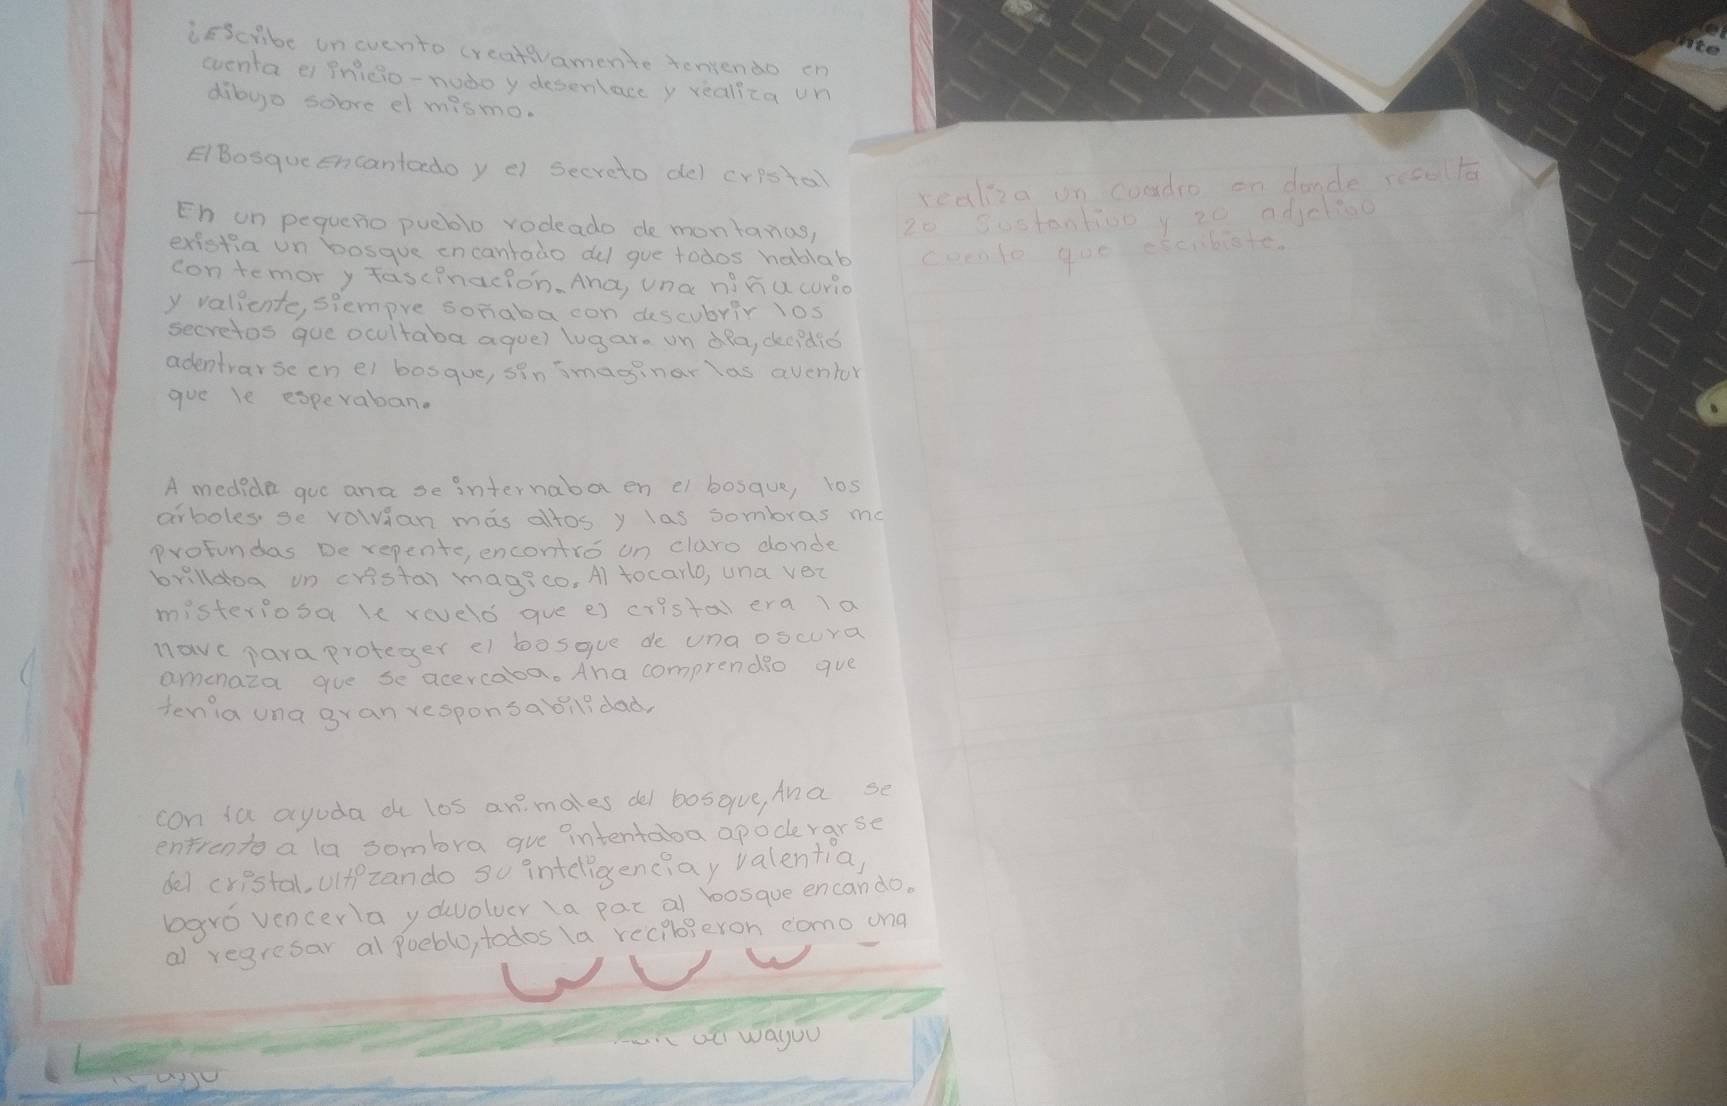 ¡Escribe un cuento creativamente teniendo en
cuenta el inicio-nudo y desenlace y realiza un
dibujo sobre el mismo.
El Bosque encantado y el secreto del cristal
En un pequeño pueblo rodeado de montañas,
existia un bosque encantado del que todos hablab
con temor y fascinación. Ana, una niña curio
y valiente, siempre soñaba con descubrir los
secretos que ocultaba aquel lugar. un dia, decidió
adentrarse en el bosque, sin imaginar las aventur
que le esperaban.
A medida que ana se internaba en el bosque, los
árboles se volvian más altos y las sombras má
profundas De repente, encontró un claro donde
brillaba un cristal magico. Al tocarlo, una voz
misteriosa le reveló que el cristal era la
llave para proteger el bosque de una oscura
amenaza que se acercaba. Ana comprendio que
tenia una gran responsabilidad.
con la ayuda de los animales del bosque, Ana se
enfrento a la sombra que intentaba apoderarse
del cristal. ultizando su inteligencia y valentia,
logró vencerla y devolver la paz al bosque encando.
al regresar al pueblo, todos la recibieron como una
wayuu
realiza un cuadro en donde resolta
20 sustantivo y 20 adjetivo
cuento que escribiste.